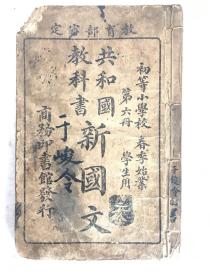 教育部審定
初等小學校 春季始業
第六冊 學生用
共和國
教科書
新國文
于峻令
商務印書館發行